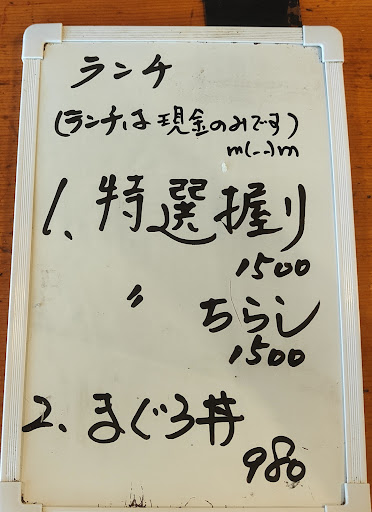 ランチ
(ランチは現金のみです)
m(_ _)m
1、特選握り
1500
〃 ちらし
1500
2、まぐろ丼
980